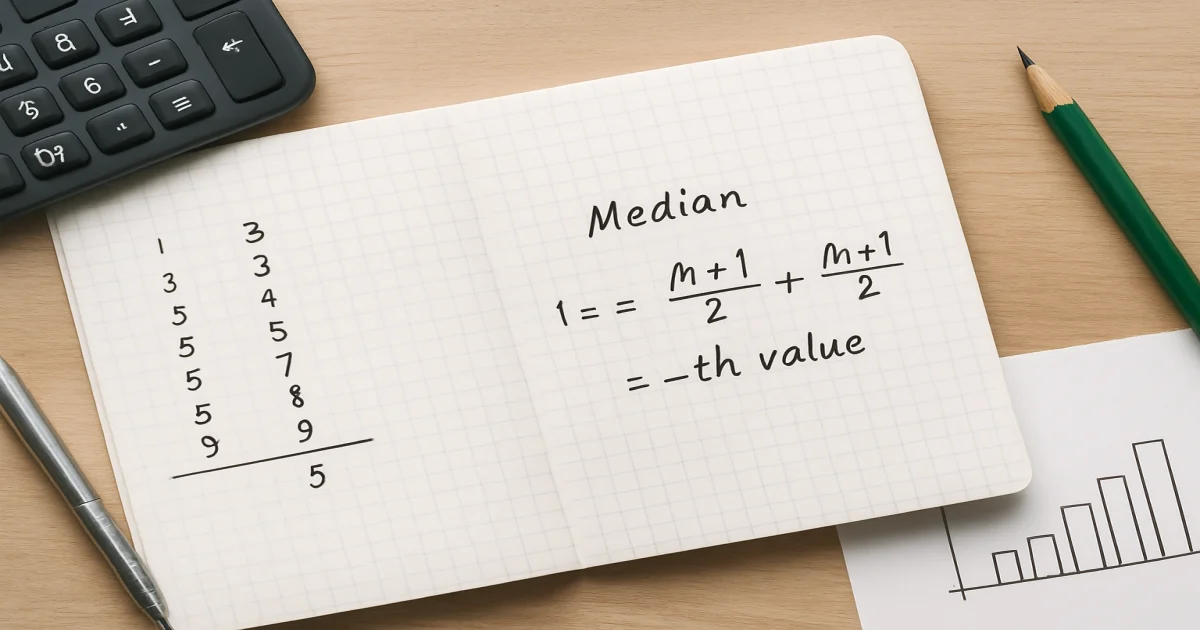 8
6
-
=
1 3
3 3
5 4
5 5
5 7
5 8
9 9
5
Median
1 = = n+1/2 + n+1/2
= -th value